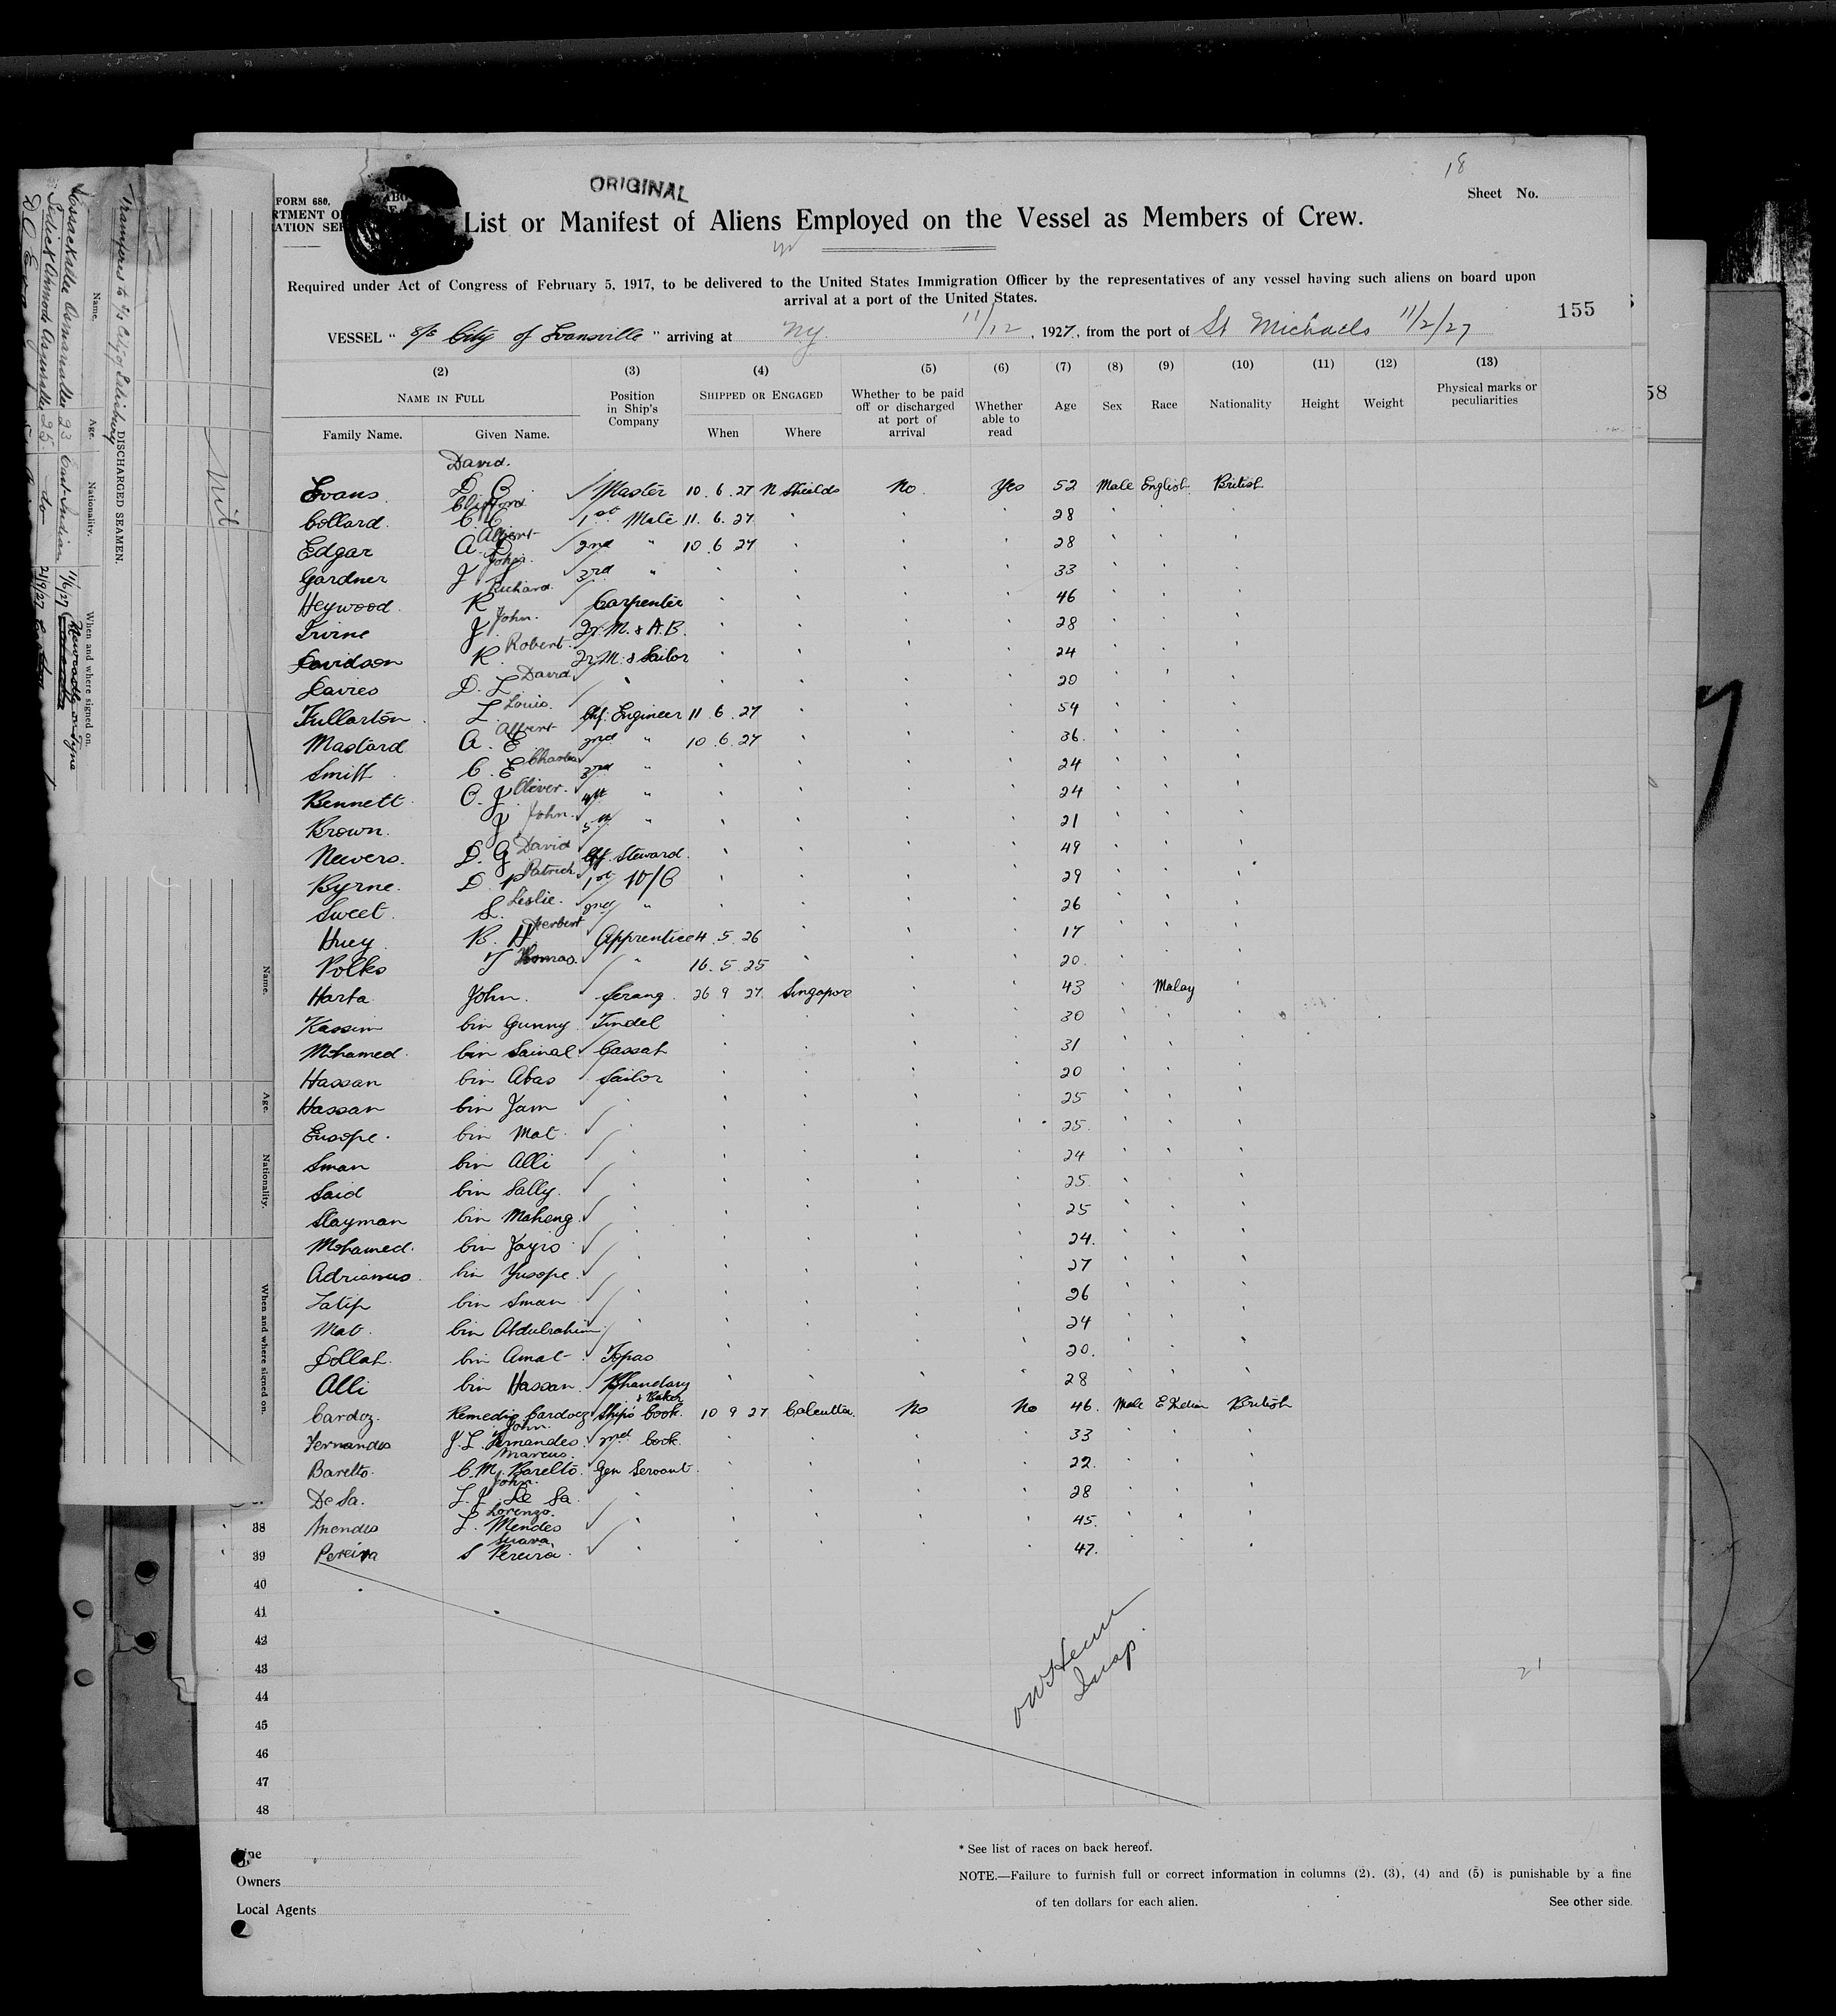 18
ORIGINAL
Sheet No.
FORM 680.
List or Manifest of Aliens Employed on the Vessel as Members of Crew.
Required under Act of Congress of February 5, 1917, to be delivered to the United States Immigration Officer by the representatives of any vessel having such aliens on board upon
arrival at a port of the United States.
155
VESSEL " S/S City of Evansville " arriving at NY. 11/12, 1927, from the port of St Michaels 11/2/27
58
(2) (3) (4) (5) (6) (7) (8) (9) (10) (11) (12) (13)
NAME IN FULL Position in Ship's Company SHIPPED OR ENGAGED Whether to be paid off or discharged at port of arrival Whether able to read Age Sex Race Nationality Height Weight Physical marks or peculiarities
Family Name. Given Name. When Where
David.
Evans D. C. Master 10. 6. 27 N Shields No. Yes 52 Male English British
Clifford
Collard. C. E. 1st Mate 11. 6. 27 " " " 28 " " "
Albert
Edgar A. 2nd " 10 6 27 " " " 28 " " "
John
Gardner J 3rd " " " " " 33 " " "
Richard.
Heywood. R Carpenter " " " " 46 " " "
John.
Irvine J. 2r. M. & A.B. " " " " 28 " " "
Robert.
Davidson R. 2r M. & Sailor " " " " 24 " " "
David
Davies D. L " " " " " 20 " " "
Louis.
Fullarton L. Chf. Engineer 11. 6. 27 " " " 54 " " "
Albert
Mastard A. E 2nd " 10. 6. 27 " " " 36. " " "
Charles
Smith C. E 3rd " " " " " 24 " " "
Oliver.
Bennett O. J 4th " " " " " 24 " " "
John.
Brown. J 5th " " " " " 21 " " "
David
Neevers. D. G Chf. Steward. " " " " 49 " " "
Patrick
Byrne. D. P 1st W/O " " " " 29 " " "
Leslie.
Sweet. L. 2nd " " " " " 26 " " "
Herbert
Huey B. H Apprentice 4. 5. 26 " " " 17 " " "
Thomas.
Polks T " 16. 5. 25 " " " 20. " " "
Harta John. Serang. 26 9 27 Singapore " " 43 " Malay "
Kassim bin Gunny. Tindel " " " " 30 " " "
Mohamed. bin Sainal. Cassah " " " " 31 " " "
Hassan bin Abas Sailor " " " " 20 " " "
Hassan bin Jam " " " " " 25 " " "
Eusope. bin Mat. " " " " " 25. " " "
Sman bin Alli " " " " " 24 " " "
Said bin Sally. " " " " " 25. " " "
Slayman bin Maheng. " " " " " 25 " " "
Mohamed. bin Jayro " " " " " 24. " " "
Adrianus. bin Yusope. " " " " " 27 " " "
Latip bin Sman " " " " " 26 " " "
Mat. bin Abdulrahim " " " " " 24 " " "
Dollah. bin Amat Topas " " " " 20. " " "
Alli bin Hassan. Bhandary " " " " 28 " " "
& Baker
Cardoz. Remedio Cardoz Ship's Cook. 10 9 27 Calcutta. No No 46. Male E Indian British
John
Fernandes J. L. Fernandes. 2nd Cook. " " " " 33 " " "
Marcus.
Baretto. C. M. Baretto. Gen Servant. " " " " 22. " " "
John.
De Sa. L. J. De Sa " " " " " 28 " " "
Lorenzo.
38 Mendes L. Mendes " " " " " 45. " " "
39 Pereira S Pereira. " " " " " 47. " " "
40
41
42
43 21
44
45
46
47
48
Insp.
Line
Owners
Local Agents
* See list of races on back hereof.
NOTE.—Failure to furnish full or correct information in columns (2), (3), (4) and (5) is punishable by a fine
of ten dollars for each alien.
See other side.
DISCHARGED SEAMEN.
Name. Age. Nationality. When and where signed on.
Nil
Name. Age. Nationality. When and where signed on.